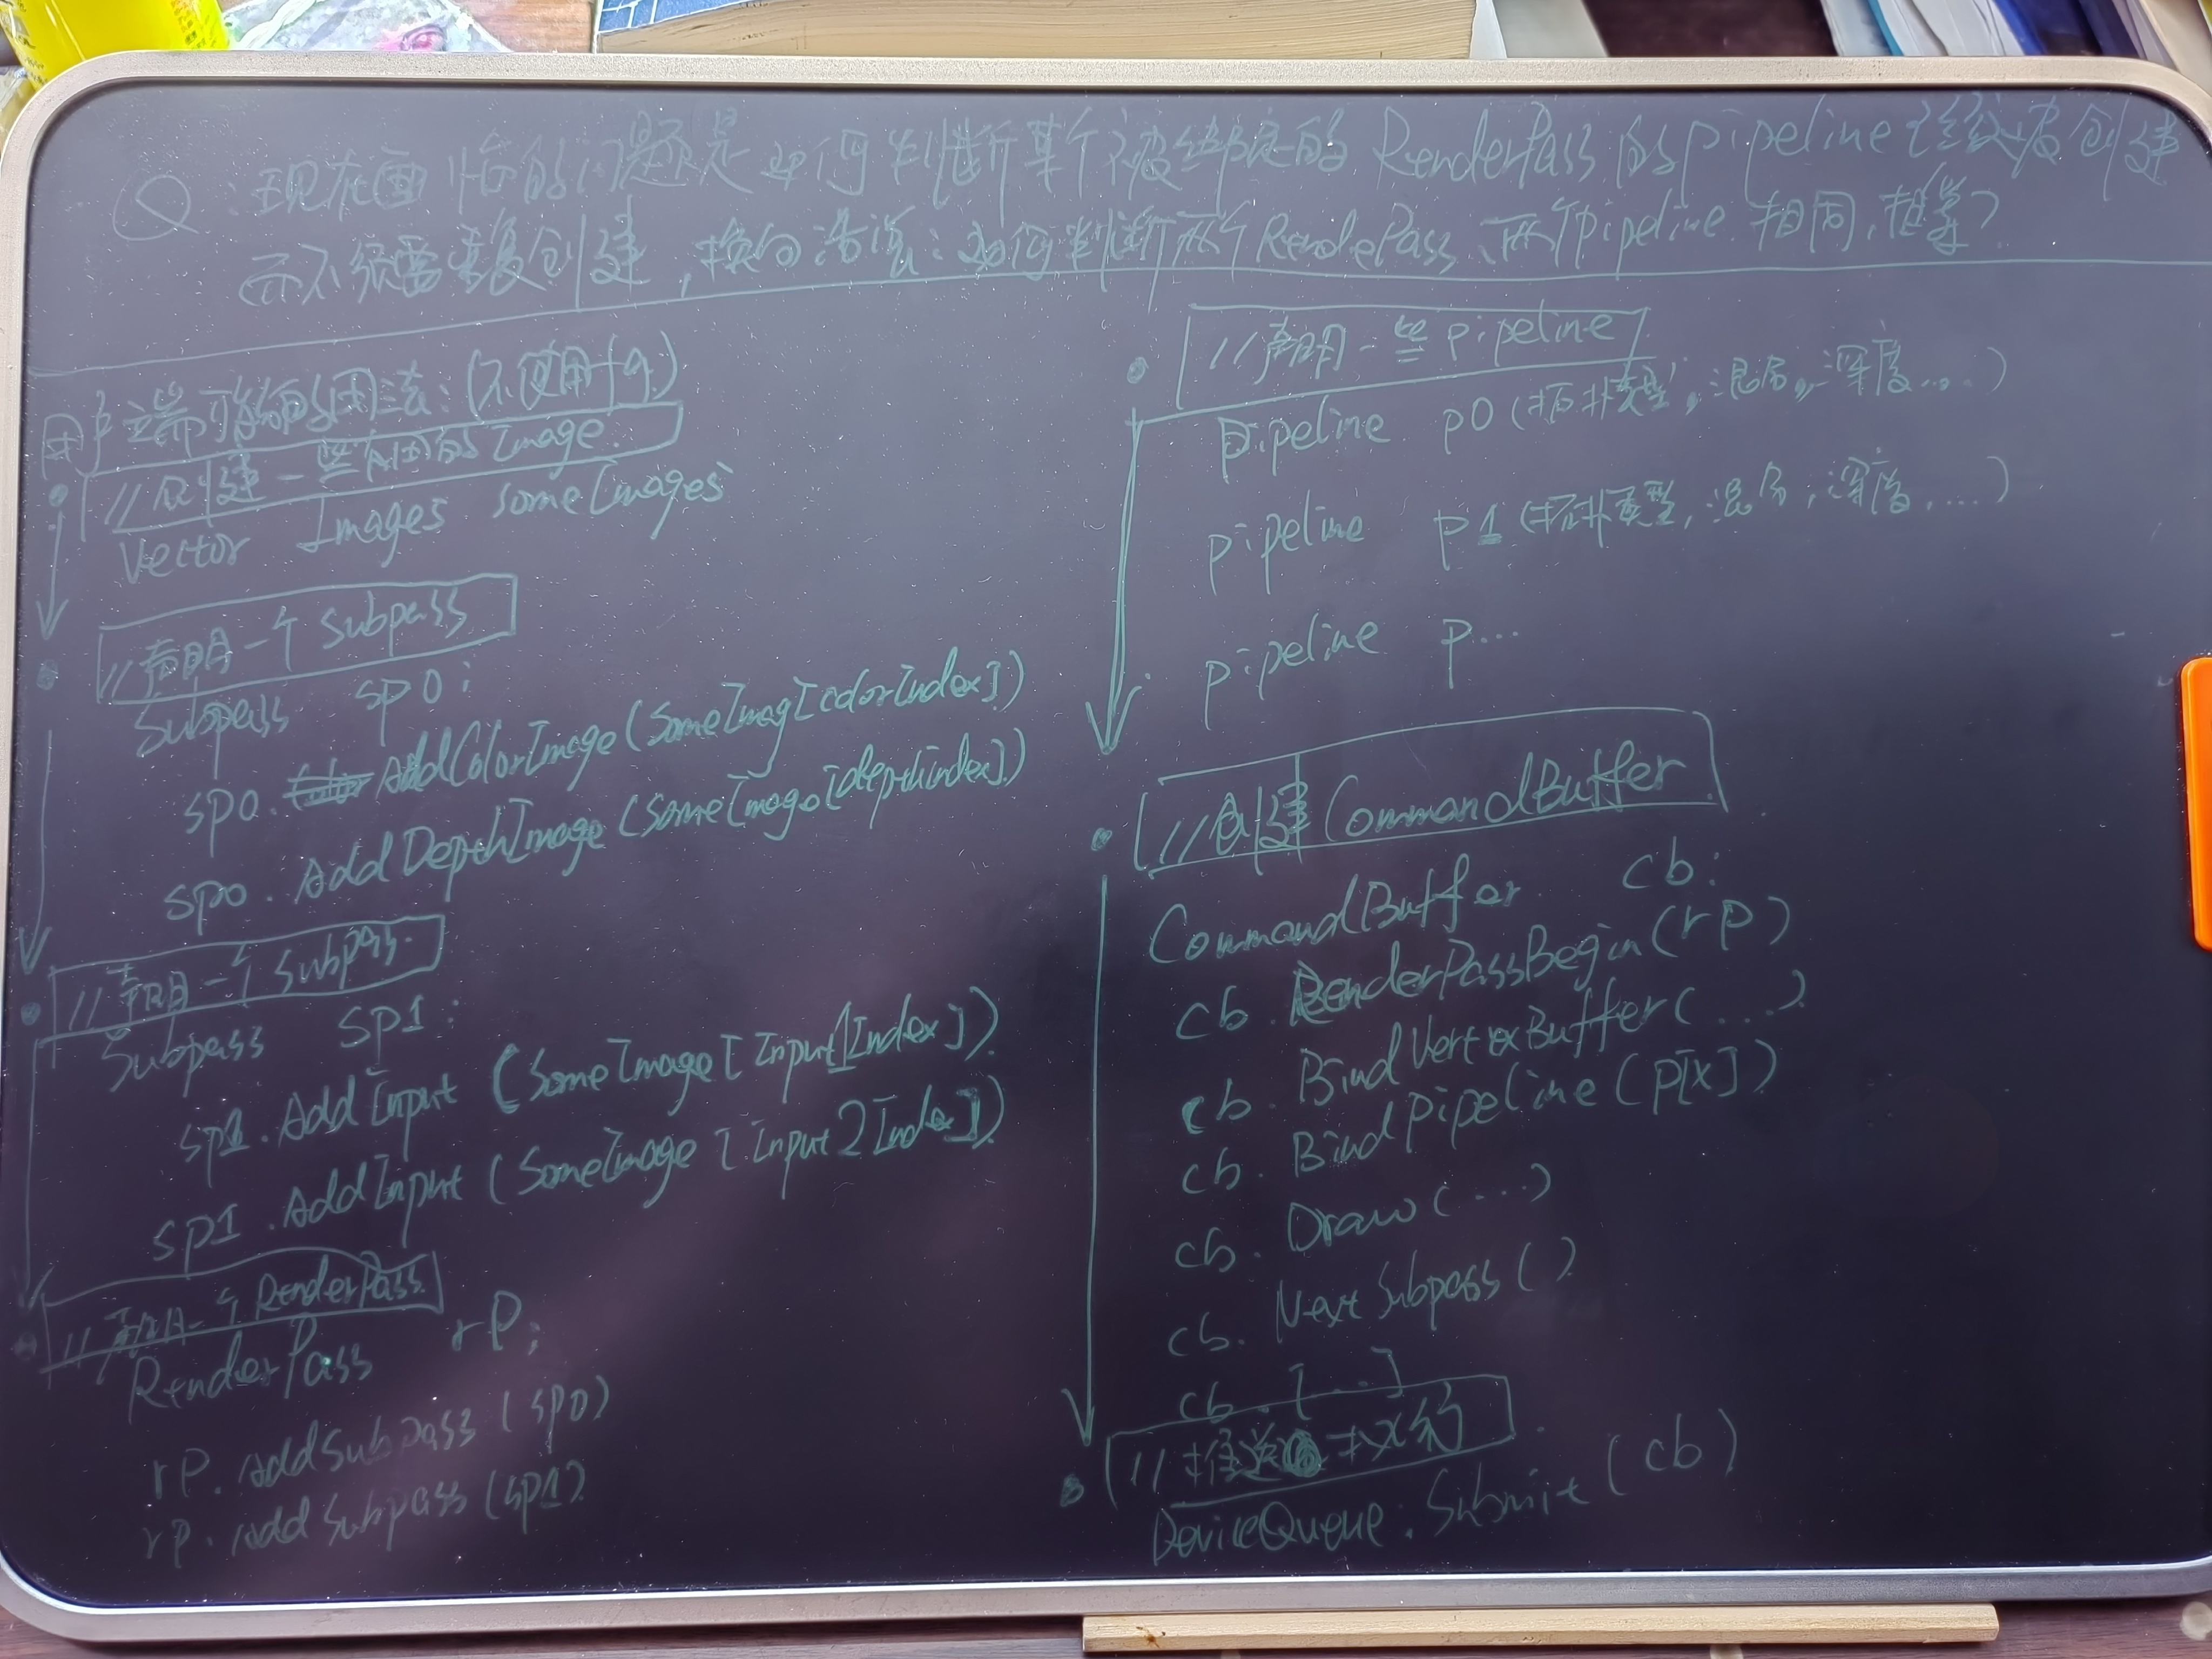 Q：现在面临的问题是如何判断某个被绑定的RenderPass的pipeline已经被创建
而不须要重复创建，换句话说：如何判断两个RenderPass、两个Pipeline相同，相等？
用户端可能的用法：(不使用fg)
//创建一些有用的Image.
Vector Images someImages
//声明一个Subpass
Subpass sp0;
sp0. AddColorImage (SomeImag[colorIndex])
sp0. AddDepthImage (SomeImage[depthindex])
//声明一个Subpass.
Subpass sp1;
sp1. AddInput (SomeImage[Input1Index])
sp1. AddInput (SomeImage[Input2Index])
//声明一个RenderPass
RenderPass rP;
rP. AddSubpass (sp0)
rP. AddSubpass (sp1)
//声明一些pipeline
Pipeline p0 (拓扑类型, 混合, 深度...)
pipeline p1 (拓扑类型, 混合, 深度, ...)
pipeline p...
//创建CommandBuffer
CommandBuffer cb;
cb. RenderPassBegin (rp)
cb. BindVertexBuffer (...)
cb. BindPipeline (p[x])
cb. Draw (...)
cb. NextSubpass ()
cb. [...]
//推送
DeviceQueue. Submit (cb)